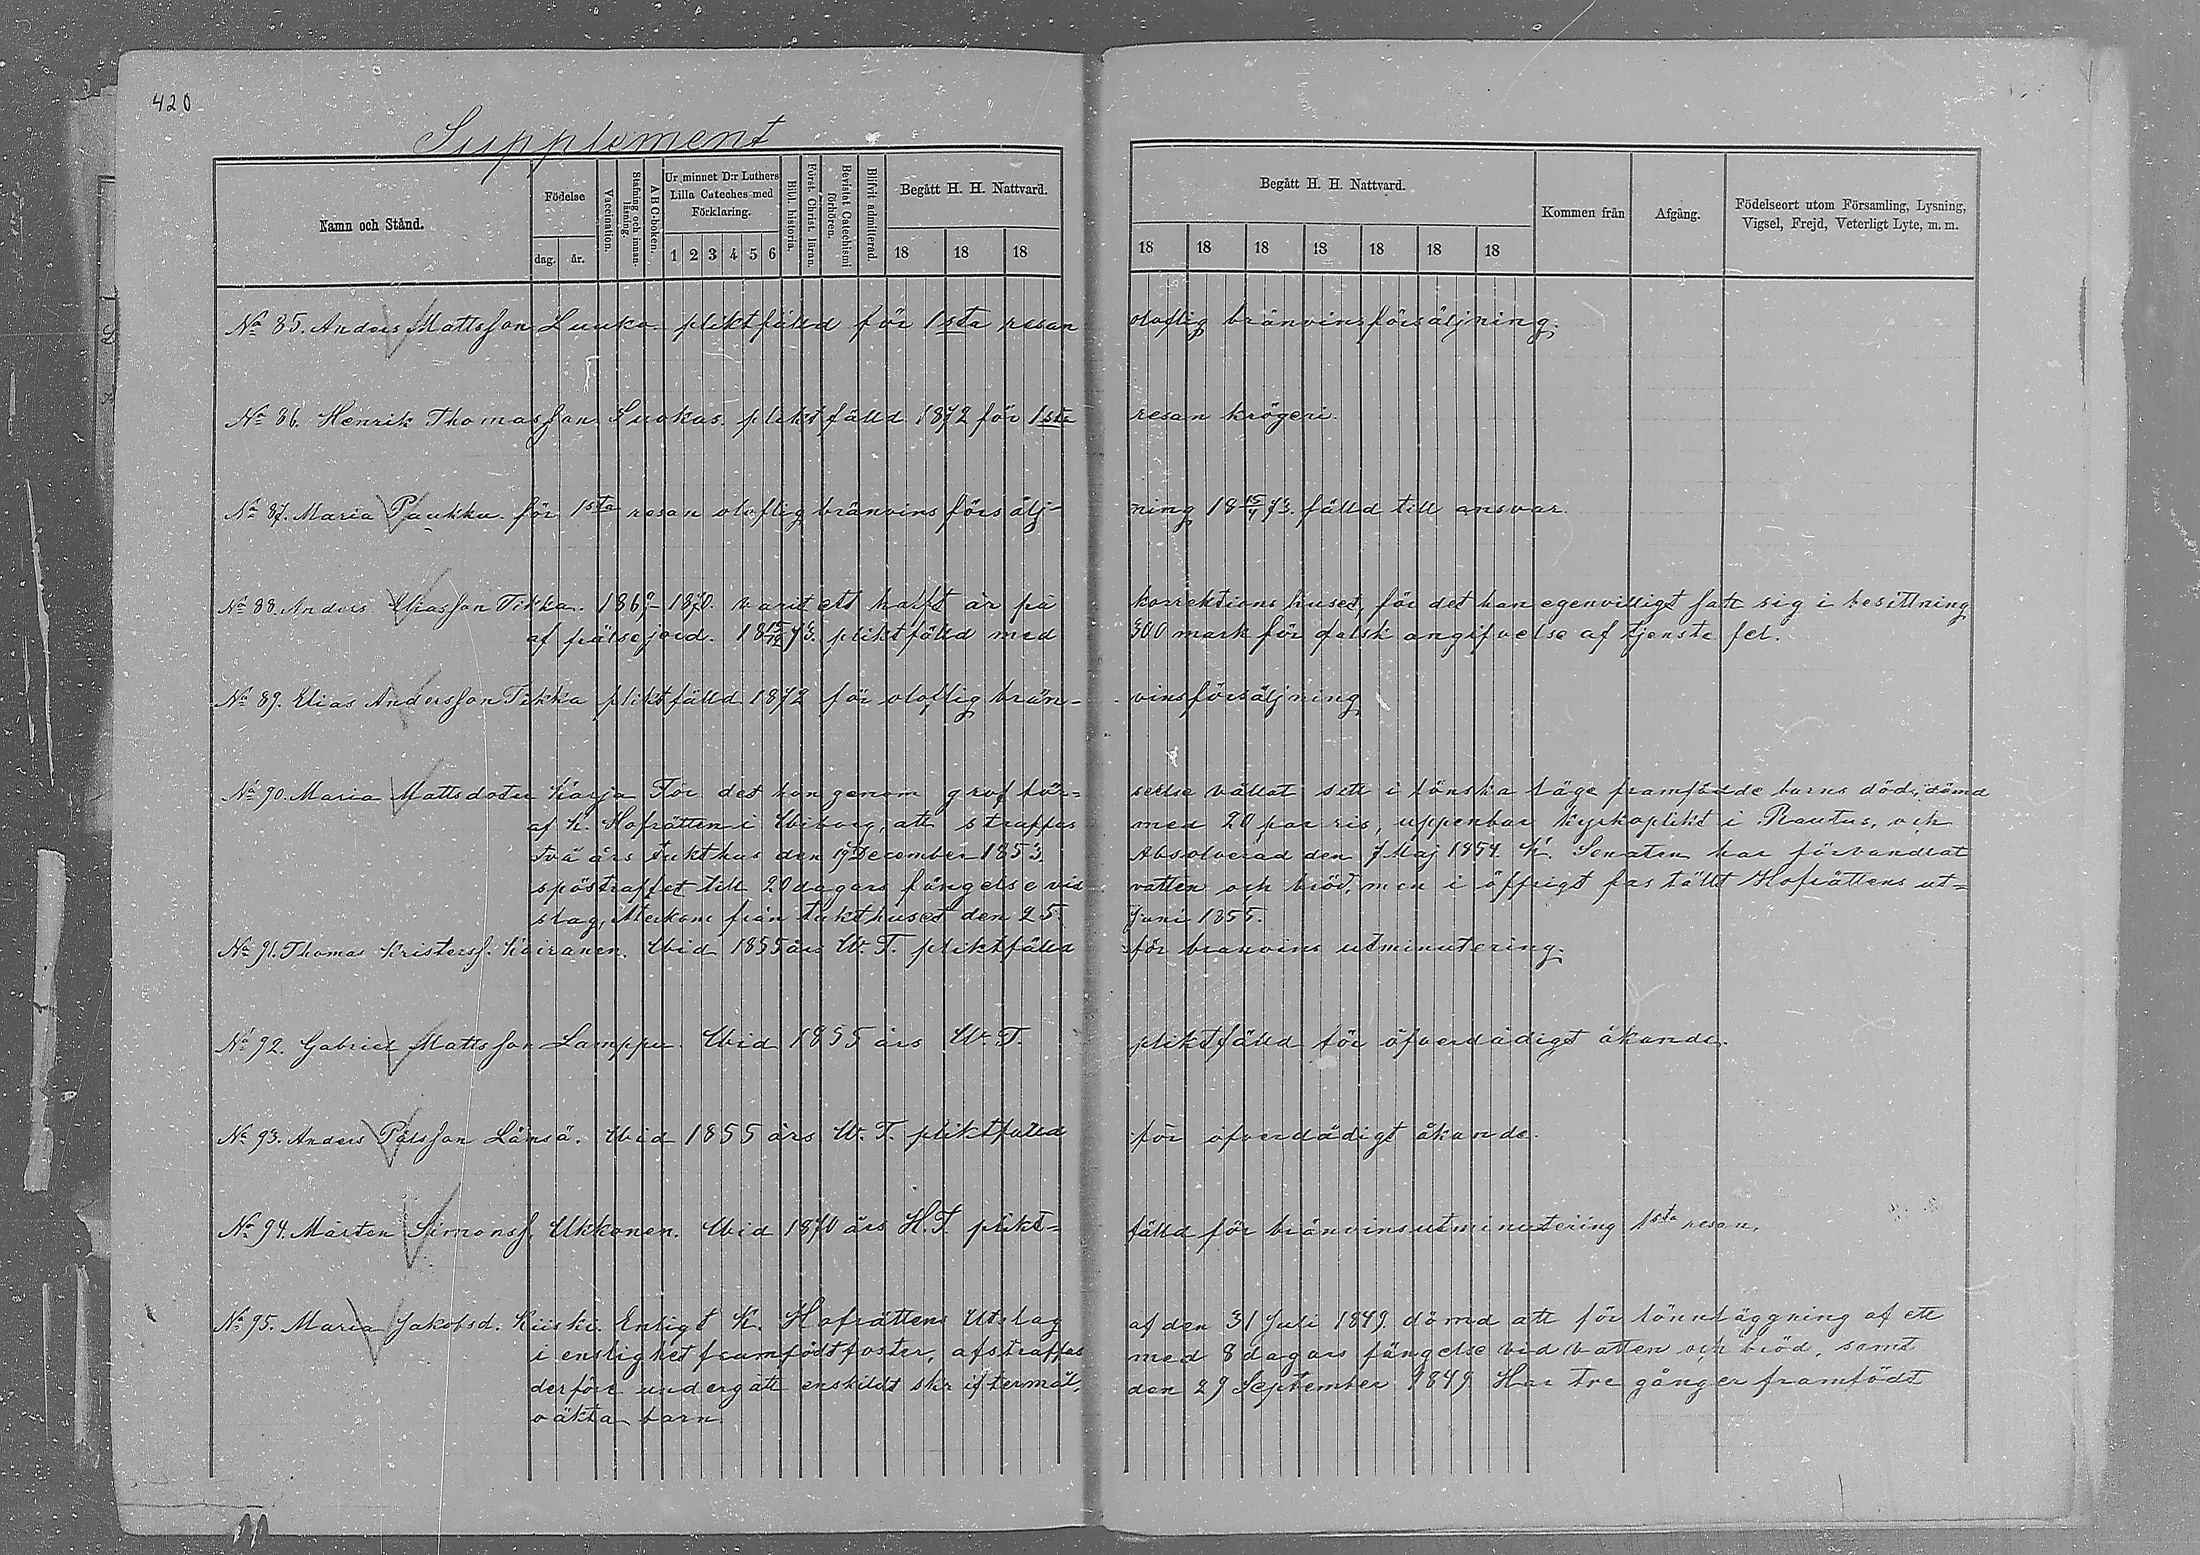 420
Supplement
Namn och Stånd.
Födelse
dag.
år.
Vaccination.
Stafning och innan-läsning.
A B C-boken.
Ur minnet D:r Luthers Lilla Cateches med Förklaring.
1 2 3 4 5 6
Bibl. historia.
Först. Christ. läran.
Bevistat Catechismi förhören.
Blifvit admitterad.
Begått H. H. Nattvard.
18 18 18
Begått H. H. Nattvard.
18 18 18 18 18 18 18
Kommen från
Afgång.
Födelseort utom Församling, Lysning,
Vigsel, Frejd, Veterligt Lyte, m. m.
No 85. Anders Mattsson Luuka pliktfälld för 1sta resan oloflig bränvinsförsäljning.
No 86. Henrik Thomasson Suokas pliktfälld 1872 för 1sta resan krögeri.
No 87. Maria Paukku. för 1sta resan oloflig bränvins försälj- ning 18 15/1 73. fälld till ansvar.
No 88. Anders Eliasson Tikka. 1869-1870. varit ett halft år på korrektions huset, för det han egenvilligt satt sig i besittning
af frälsejord. 18 15/12 73. pliktfälld med 300 mark för falsk angifvelse af tjenste fel.
No 89. Elias Andersson Tikka pliktfälld 1872 för oloflig brän- vinsförsäljning
No 90. Maria Mattsdoter Karja För det hon genom grof vår- selse vållat sitt i lönska läge framfödde barns död, dömd
af K. Hofrätten i Wiborg, att straffas med 20 par ris, uppenbar kyrkoplikt i Rautus, och
två års tukthus den 19 December 1853. Absolverad den 7 Maj 1854. K. Senaten har förvandlat
spöstraffet till 20 dagars fängelse vid vatten och bröd, men i öffrigt faställt Hofrättens ut-
slag, Återkom från tukthuset den 25 Juni 1855.
No 91. Thomas Kristerss. Kairanen. Wid 1855 års W. T. pliktfälld för bränvins utminutering.
No 92. Gabriel Mattsson Lamppu. Wid 1855 års W. T. pliktfälld för öfverdådigt åkande.
No 93. Anders Pålsson Länsä. Wid 1855 års W. T. pliktfälld för öfverdådigt åkande.
No 94. Mårten Simonss. Ukkonen. Wid 1870 års H. T. plikt- fälld för bränvinsutminutering 1sta resan.
No 95. Maria Jakobsd. Kiiski. Enligt K. Hofrättens Utslag af den 31 Juli 1849. dömd att för lönnläggning af ett
i enslighet framfödt foster, afstraffas med 8 dagars fängelse vid vatten och bröd, samt
derföre undergått enskildt skriftermål, den 29 September 1849 Har tre gånger framfödt
oäkta barn.